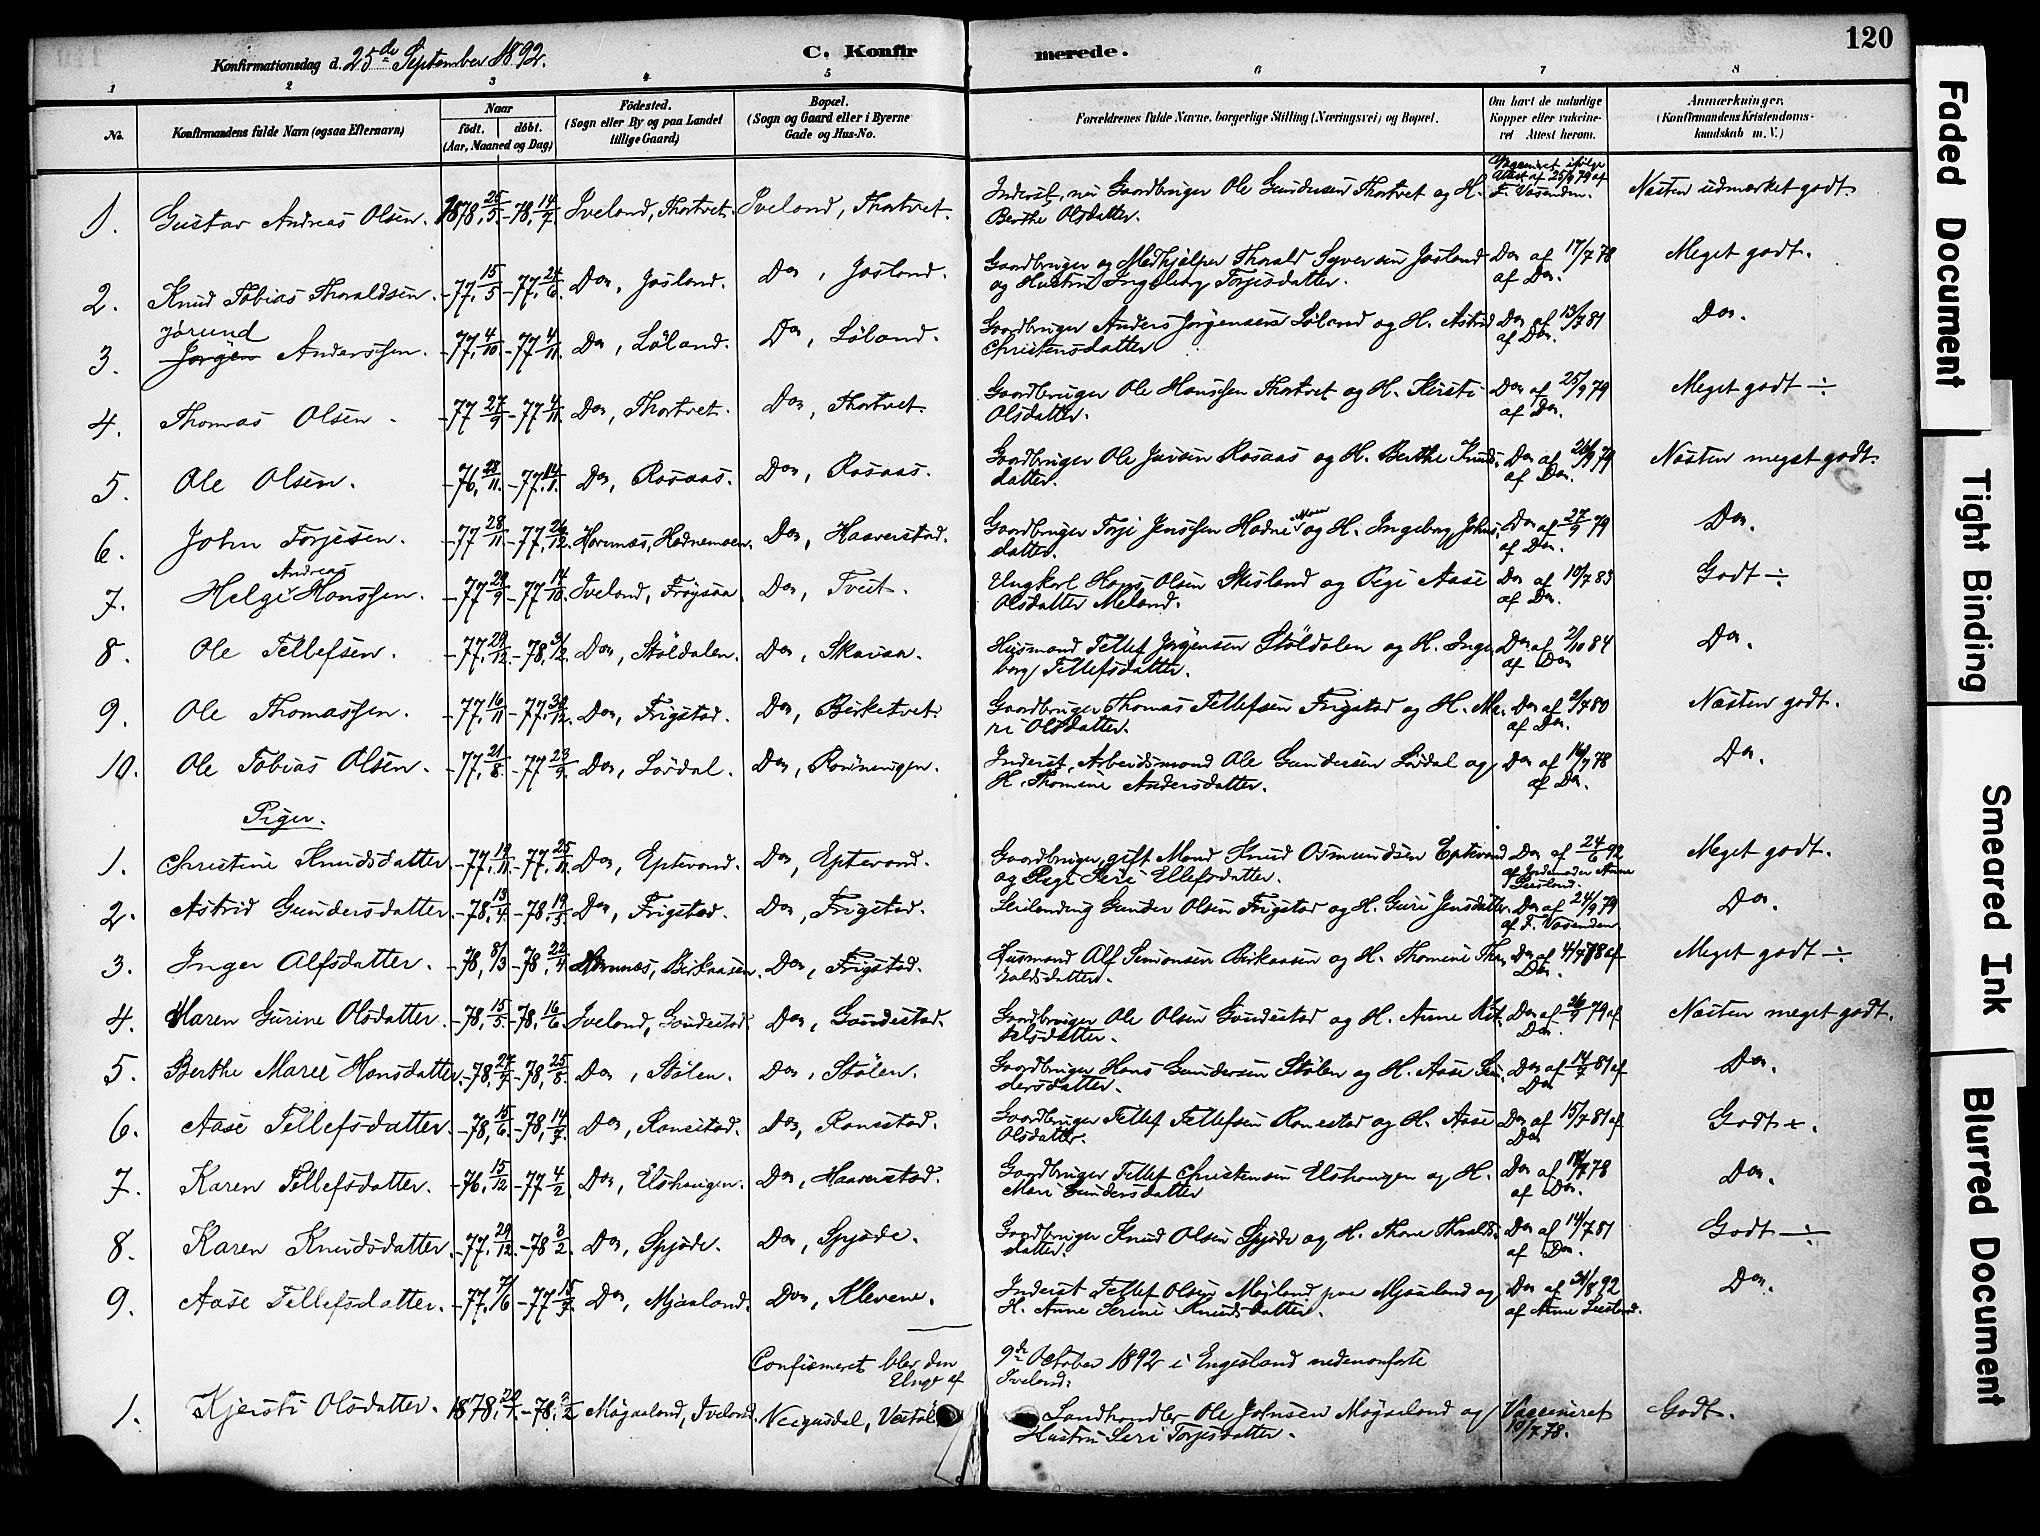 Konfirmationsdag d. 25de September 1892.
C. Konfirmerede.
120
1 2 3 4 5 6 7 8
No.
Konfirmandens fulde Navn (ogsaa Efternavn)
Naar
födt. döbt.
(Aar, Maaned og Dag)
Födested.
(Sogn eller By og paa Landet
tillige Gaard)
Bopæl.
(Sogn og Gaard eller i Byerne
Gade og Hus-No.
Forældrenes fulde Navne, borgerlige Stilling (Næringsvei) og Bopæl.
Om havt de naturlige
Kopper eller vakcine-
ret Attest herom.
Anmærkninger.
(Konfirmandens Kristendoms-
kundskab m. V.)
1. Gustav Andreas Olsen. 1878, 25/5 -78, 14/7. Iveland, Thortvet. Iveland, Thortvet. Inderst, nu Gaardbruger Ole Gundersen Thortvet og H. Vaccineret ifølge Næsten udmærket godt.
Berthe Olsdatter. Attest af 25/9 79 af
F. Vasenden.
2. Knud Tobias Thoraldsen. -77, 15/5 -77, 24/6. Do, Josland. Do, Josland. Gaardbruger og Medhjælper Thorald Syversen Josland Do af 17/7 78 Meget godt.
og Hustru Ingeborg Torjesdatter. af Do.
Jörund
3. Jørgen Anderssen. -77, 4/10 -77 4/11. Do, Løland. Do, Løland. Gaardbruger Anders Jørgensen Løland og H. Astrid Do af 13/7 81 Do.
Christensdatter af Do.
4. Thomas Olsen. -77 27/9 -77 4/11. Do, Thortvet. Do, Thortvet. Gaardbruger Ole Hanssen Thortvet og H. Kirsti Do af 25/9 79 Meget godt ÷
Olsdatter. af Do.
5. Ole Olsen. -76, 28/11 -77, 14/1. Do, Rosaas. Do, Rosaas. Gaardbruger Ole Rosaas og H. Berthe Knuds- Do af 26/9 79 Næsten meget godt.
datter. af Do.
6. John Torjesen. -77 28/11 -77, 26/12. Hornnæs, Hodnemoen. Do, Haaverstad. Gaardbruger Torje Jenssen Hodne moen og H. Ingeborg Johns- Do af 27/9 79 Do.
datter. af Do.
Andreas
7. Helge Hanssen. -77 29/9 -77 14/10. Iveland, Frøysaa Do, Tveit. Ungkarl Hans Olsen Skisland og Pige Aase Do af 10/7 83 Godt ÷
Olsdatter Meland. af Do.
8. Ole Tellefsen. -77, 29/12 -78, 9/2. Do, Stöldalen. Do, Skaiaa. Husmand Tellef Jørgensen Stöldalen og H. Inge- Do af 2/10 84 Do.
borg Tellefsdatter. af Do
9. Ole Thomassen. -77, 16/11 -77, 30/12. Do, Frigstad. Do, Birketvet. Gaardbruger Thomas Tellefsen Frigstad og H. Ma- Do af 2/7 80 Næsten godt.
ri Olsdatter. af Do.
10. Ole Tobias Olsen. -77, 21/8 -77 23/9. Do, Lördal. Do, Rønningen. Inderst, Arbeidsmand Ole Gundersen Lördal og Do af 16/9 78 Do.
H. Thomine Andersdatter. af Do.
Piger.
1. Christine Knudsdatter -77, 19/11 -77, 25/11. Do, Eptevand. Do, Eptevand. Gaardbruger, gift Mand Knud Osmundsen Eptevand Do af 24/6 92 Meget godt.
og Pige Seri Ellefsdatter. af Jordmoder Anne
2. Astrid Gundersdatter -78, 13/4 -78, 19/5. Do, Frigstad. Do, Frigstad. Leilænding Gunder Olsen Frigstad og H. Guri Jensdatter. Do af 24/9 79 Do.
af F. Vasenden
3. Inger Alfsdatter. -78, 8/3 -78, 22/4 Hornnæs, Birkaasen. Do, Frigstad. Husmand Alf Simonsen Birkaasen og H. Thomine Tho- Do af 4/7 78 af Meget godt ÷
raldsdatter. Do.
4. Karen Gurine Olsdatter. -78, 15/5 -78, 16/6. Iveland, Gaudestad. Do, Gaudestad. Gaardbruger Ole Olsen Gaudestad og H. Anne Kit- Do af 26/9 79 af Næsten meget godt.
telsdatter. Do.
5. Berthe Marie Hansdatter. -78, 27/7 -78, 25/8. Do, Stölen. Do, Stölen. Gaardbruger Hans Gundersen Stölen og H. Aase Gun- Do af 14/7 81 af Do.
dersdatter. Do
6. Aase Tellefsdatter. -78, 15/6 -78, 14/7. Do, Ranestad. Do, Ranestad. Gaardbruger Tellef Tellefsen Ranestad og H. Aase Do af 15/7 81 af Godt +.
Olsdatter. Do
7. Karen Tellefsdatter. -76, 15/12 -77 4/2 Do, Elshaugen. Do, Haaverstad. Gaardbruger Tellef Christensen Elshaugen og H. Do af 18/7 78 Do.
Mari Gundersdatter af Do.
8. Karen Knudsdatter. -77, 29/12 -78 3/2 Do, Spjøde. Do, Spjøde. Gaardbruger Knud Olsen Spjøde og H. Thone Thoralds- Do af 14/7 81 Godt ÷
datter. af Do.
9. Aase Tellefsdatter. -77, 7/6 -77 15/7 Do, Mjaaland. Do, Klevene. Inderst Tellef Olsen Møland paa Mjaaland og Do af 31/8 92 Do.
H. Anne Serine Knudsdatter. af Anne
Confirmeret blev den 9de October 1892 i Engesland nedenanførte
Unge af Iveland:
1. Kjersti Olsdatter. 1878, -78, 3/2 Møgaaland, Iveland. Landhandler Ole Johnsen Møgaaland og Vaccineret Godt.
Hustru Seri Torjesdatter. 19/7 78.
Faded Document
Tight Binding
Smeared Ink
Blurred Document